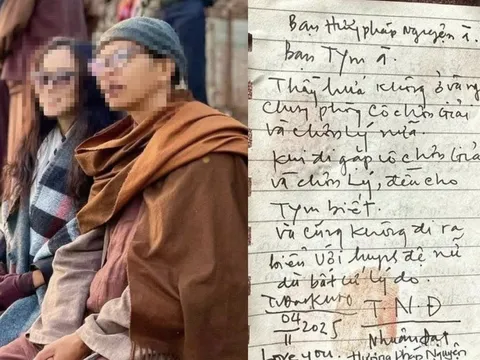 Bạn Hướng pháp Nguyện à.
Bạn Tym à.
Thầy hứa không ở vàng
chung phòng cô chơn Giải
và chơn lý nữa.
Khi đi gặp cô chơn Giải
và chơn lý, đều cho
Tym biết.
và cũng không đi ra
biển với huynh đệ nữ
dù bất cứ lý do.
04 TNĐ
11 2025 Nhuận đạt
Love you. Hướng pháp Nguyện